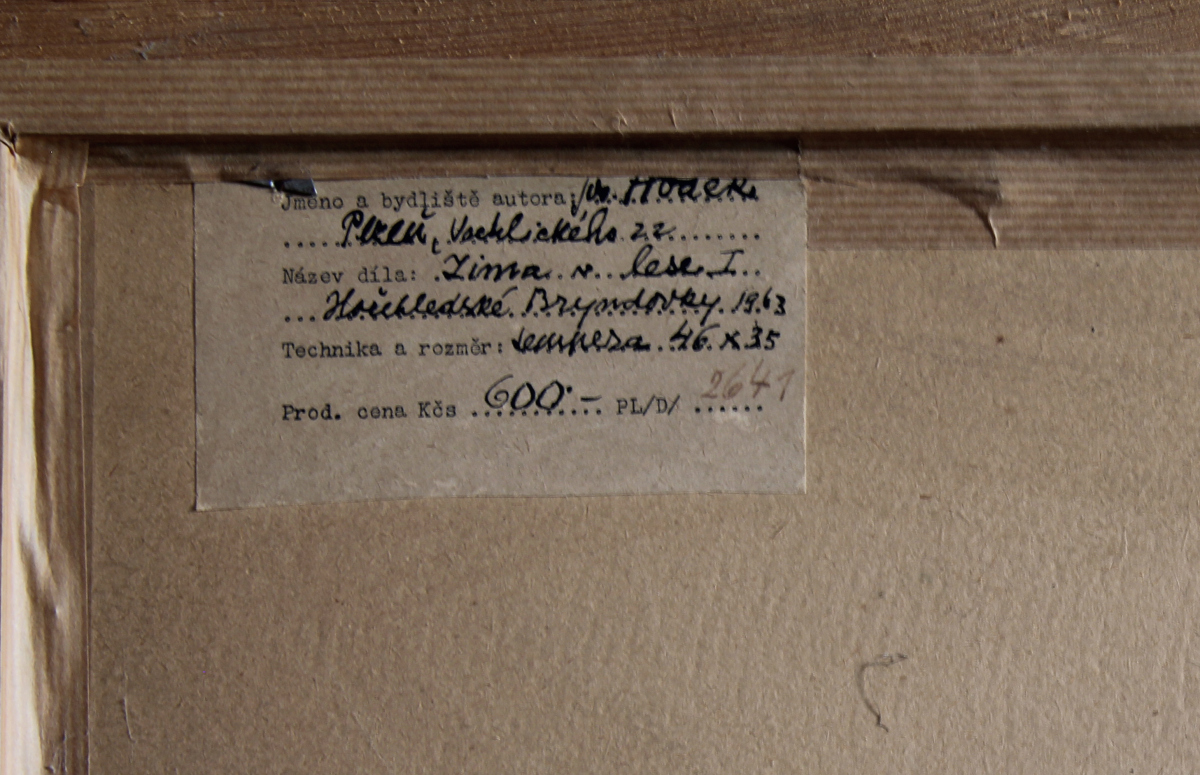 Jméno a bydliště autora: Hodek
Plzeň, Vrchlického 22
Název díla: Zima v lese I.
Bryndovky 1963
Technika a rozměr: tempera 46 x 35
Prod. cena Kčs 600.– PL/D/ 2641